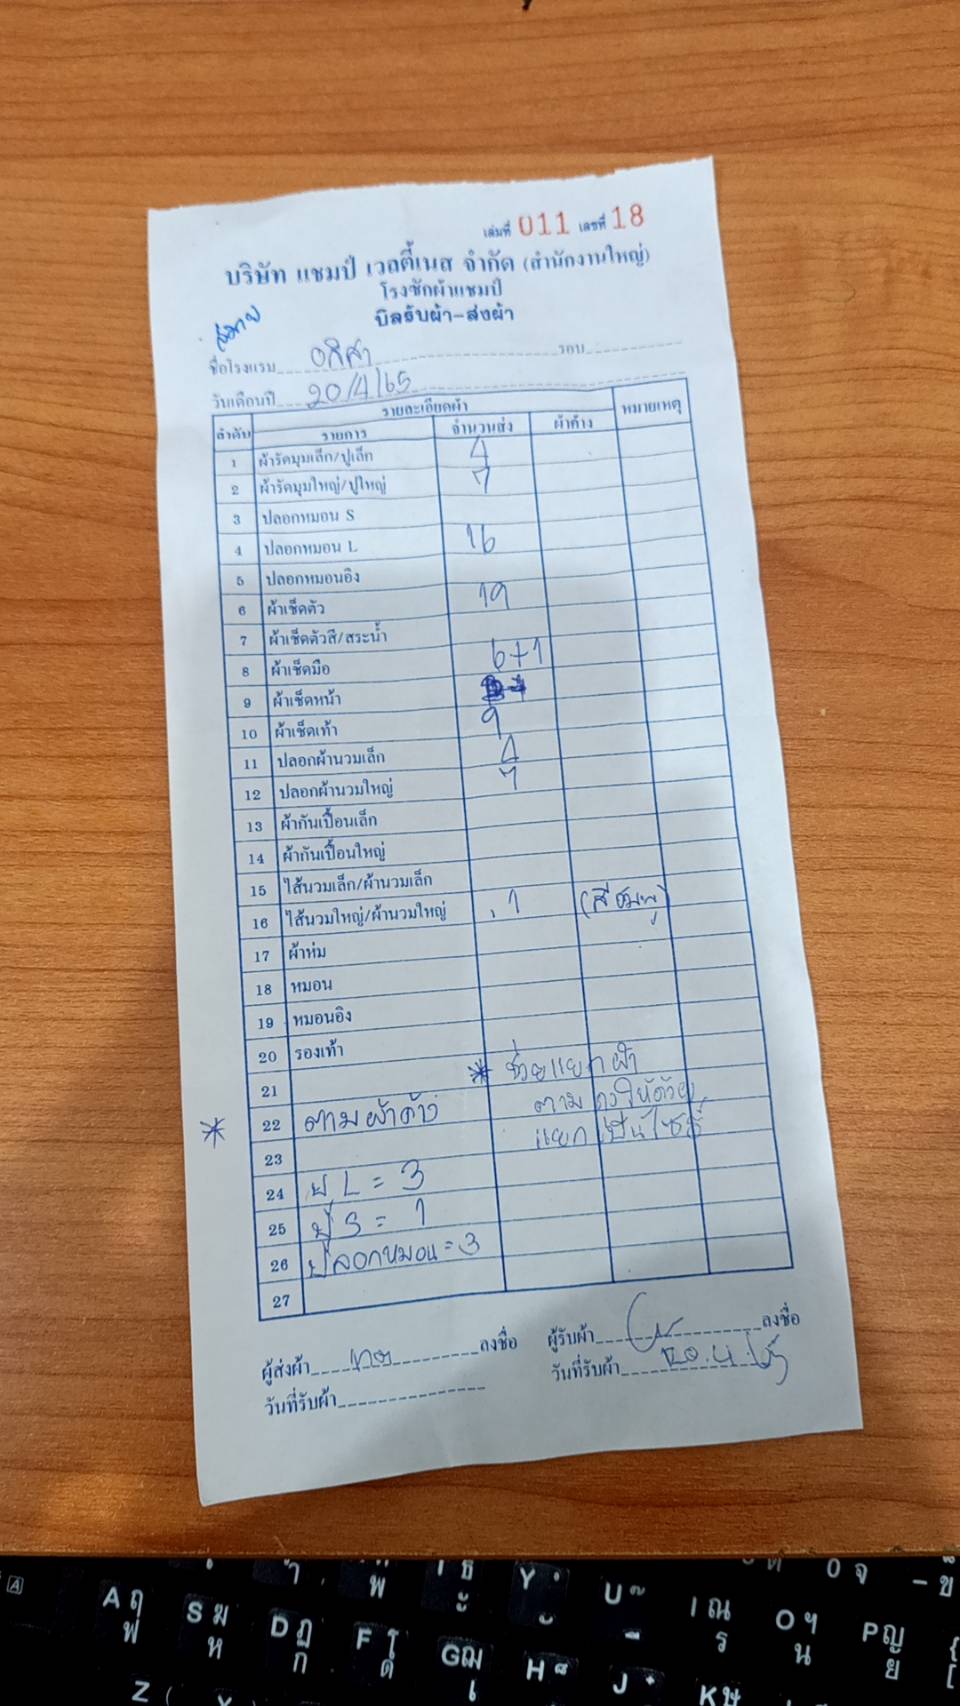 เล่มที่ 011 เลขที่ 18
บริษัท แชมป์ เวลตี้เนส จำกัด (สำนักงานใหญ่)
โรงซักผ้าแชมป์
บิลรับผ้า-ส่งผ้า
ชื่อโรงแรม อลิสา รอบ
วันเดือนปี 20/4/65
ลำดับ รายละเอียดผ้า หมายเหตุ
รายการ จำนวนส่ง ผ้าค้าง
1 ผ้ารัดมุมเล็ก/ปูเล็ก 4
2 ผ้ารัดมุมใหญ่/ปูใหญ่ 7
3 ปลอกหมอน S
4 ปลอกหมอน L 16
5 ปลอกหมอนอิง
6 ผ้าเช็ดตัว 19
7 ผ้าเช็ดตัวสี/สระน้ำ
8 ผ้าเช็ดมือ 6+1
9 ผ้าเช็ดหน้า
10 ผ้าเช็ดเท้า 9
11 ปลอกผ้านวมเล็ก 4
12 ปลอกผ้านวมใหญ่ 7
13 ผ้ากันเปื้อนเล็ก
14 ผ้ากันเปื้อนใหญ่
15 ไส้นวมเล็ก/ผ้านวมเล็ก
16 ไส้นวมใหญ่/ผ้านวมใหญ่ 1 (สีชมพู)
17 ผ้าห่ม
18 หมอน
19 หมอนอิง
20 รองเท้า
21 * ช่วยแยกผ้า
* 22 ตามผ้าค้าง ตามถุงให้ด้วย
23 แยกเป็นไซส์
24 ปู L = 3
25 ปู S = 1
26 ปลอกหมอน = 3
27
ผู้ส่งผ้า ลงชื่อ ผู้รับผ้า ลงชื่อ
วันที่รับผ้า วันที่รับผ้า
Y U I O P
A S D F G H J K
Z